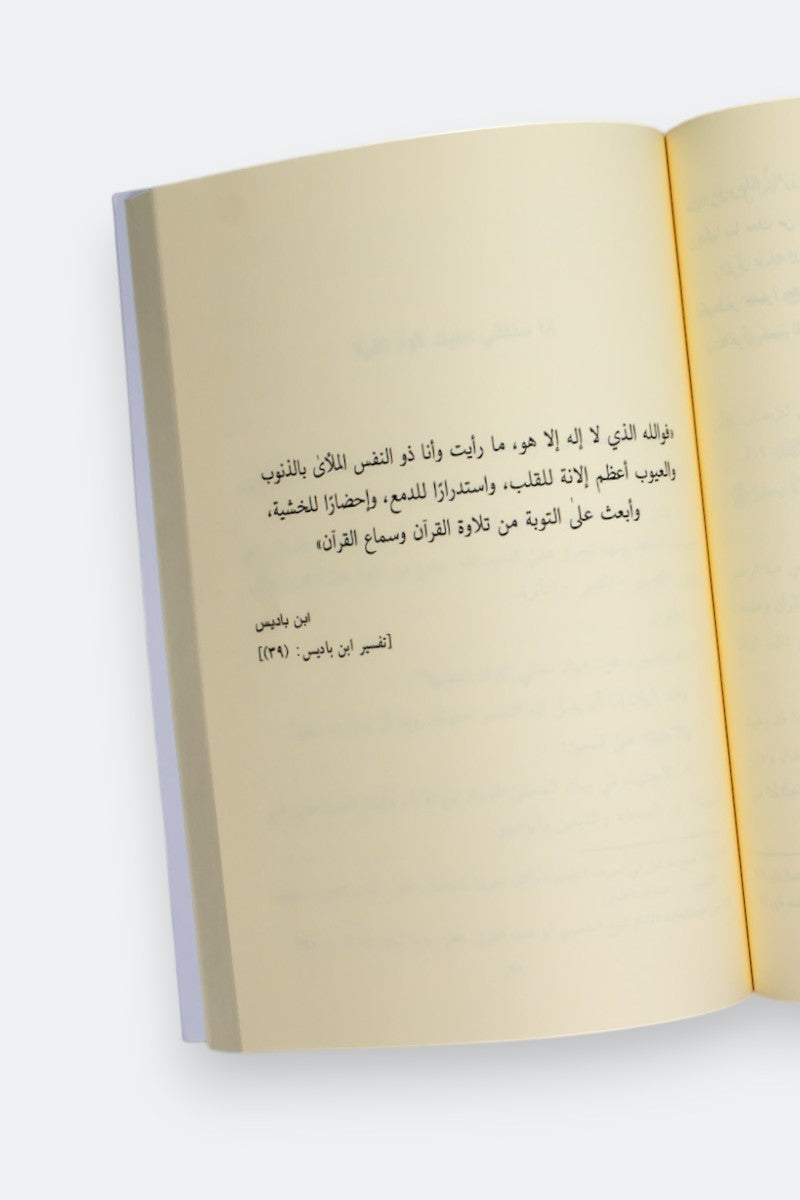 «فوالله الذي لا إله إلا هو، ما رأيت وأنا ذو النفس الملأىٰ بالذنوب
والعيوب أعظم إلانة للقلب، واستدرارًا للدمع، وإحضارًا للخشية،
وأبعث علىٰ التوبة من تلاوة القرآن وسماع القرآن»
ابن باديس
[تفسير ابن باديس: (٣٩)]